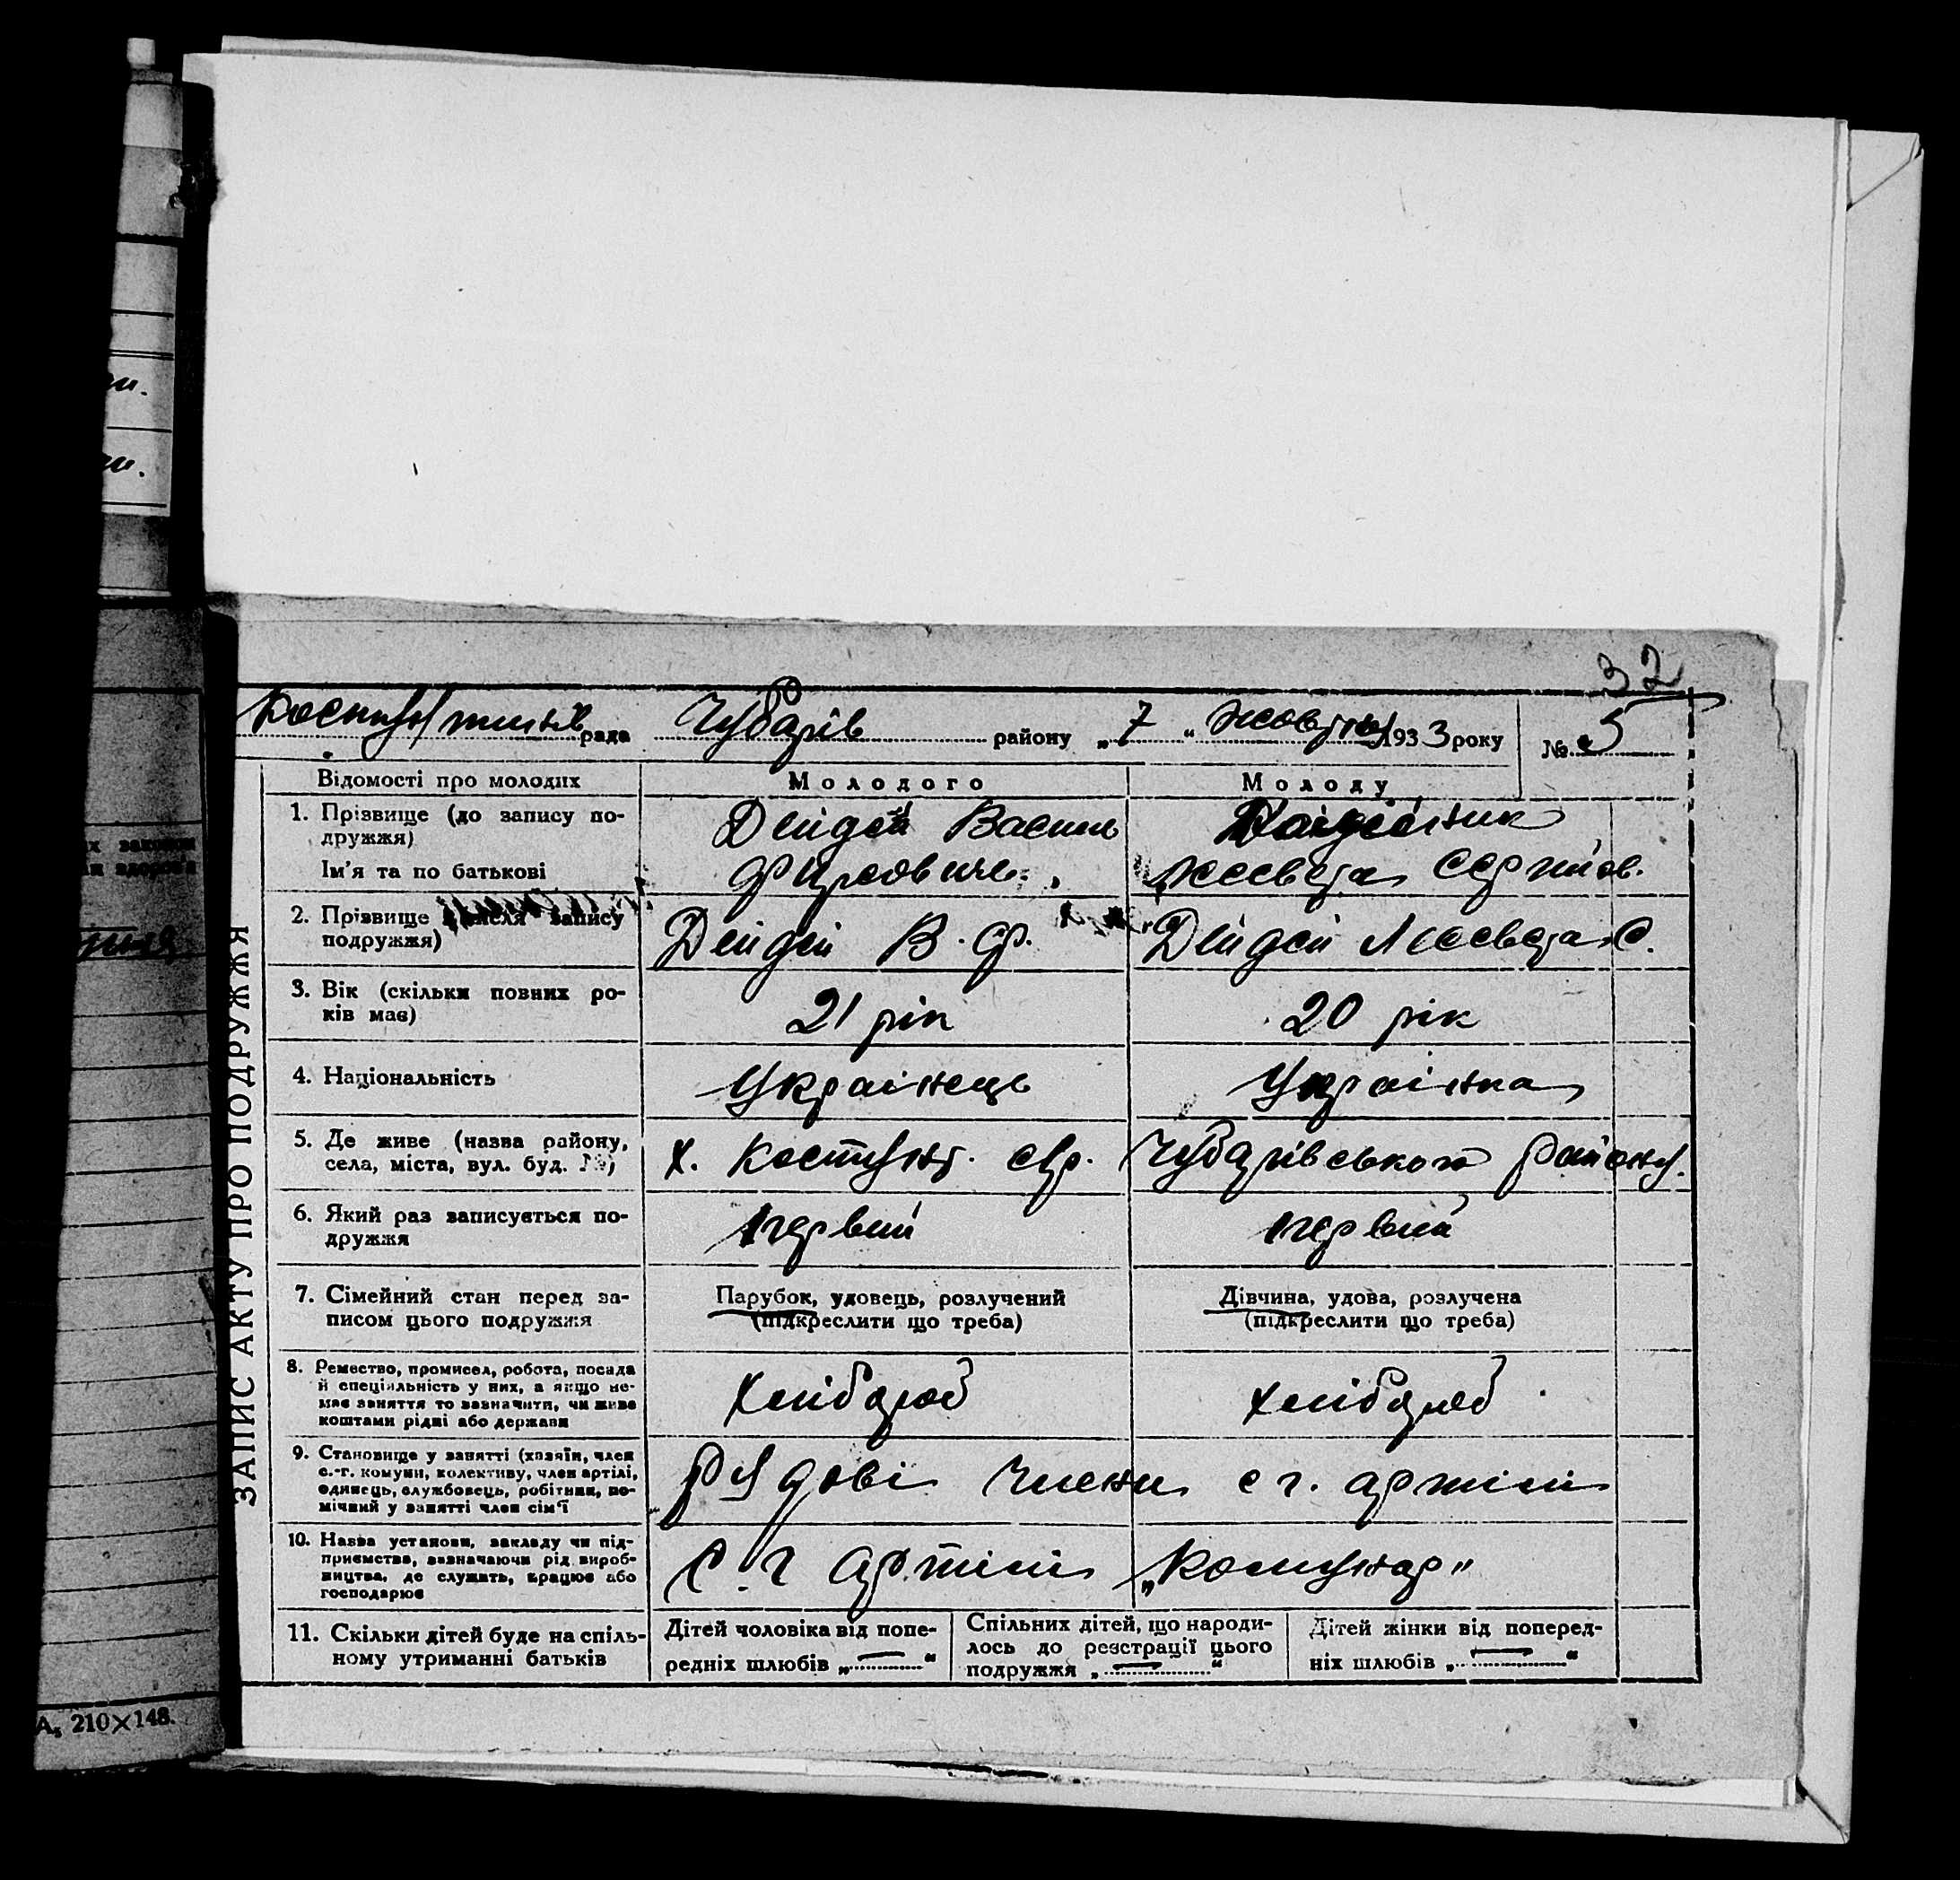 32
рада Чубарів району „7" жовтня 1933 року № 5
ЗАПИС АКТУ ПРО ПОДРУЖЖЯ
Відомості про молодих Молодого Молоду
1. Прізвище (до запису по-
дружжя)
Ім'я та по батькові
Дейдей Василь
Фирсович.
Сергиїв.
2. Прізвище запису
подружжя)
Дейдей В. Ф. Дейдей С.
3. Вік (скільки повних ро-
ків має)
21 рік 20 рік
4. Національність Українець Українка
5. Де живе (назва району,
села, міста, вул. буд. №)
х. ср. Чубарівського району.
6. Який раз записується по-
дружжя
первий первий
7. Сімейний стан перед за-
писом цього подружжя
Парубок, удовець, розлучений
(підкреслити що треба)
Дівчина, удова, розлучена
(підкреслити що треба)
8. Ремество, промисел, робота, посада
й спеціяльність у них, а якщо не-
має заняття то зазначити, чи живе
коштами рідні або держави
хлібороб хлібороб
9. Становище у занятті (хазяїн, член
с.-г. комуни, колективу, член артілі,
одинець, службовець, робітник, по-
мічний у занятті член сім'ї
Рядові члени с г. артіли
10. Назва установи, закладу чи під-
приємства, зазначаючи рід вироб-
ництва, де служать, працює або
господарює
С. г артіли „Комунар"
11. Скільки дітей буде на спіль-
ному утриманні батьків
Дітей чоловіка від попе-
редніх шлюбів „ — "
Спільних дітей, що народи-
лось до реєстрації цього
подружжя „ — "
Дітей жінки від поперед-
ніх шлюбів „ — "
А₅ 210×148.